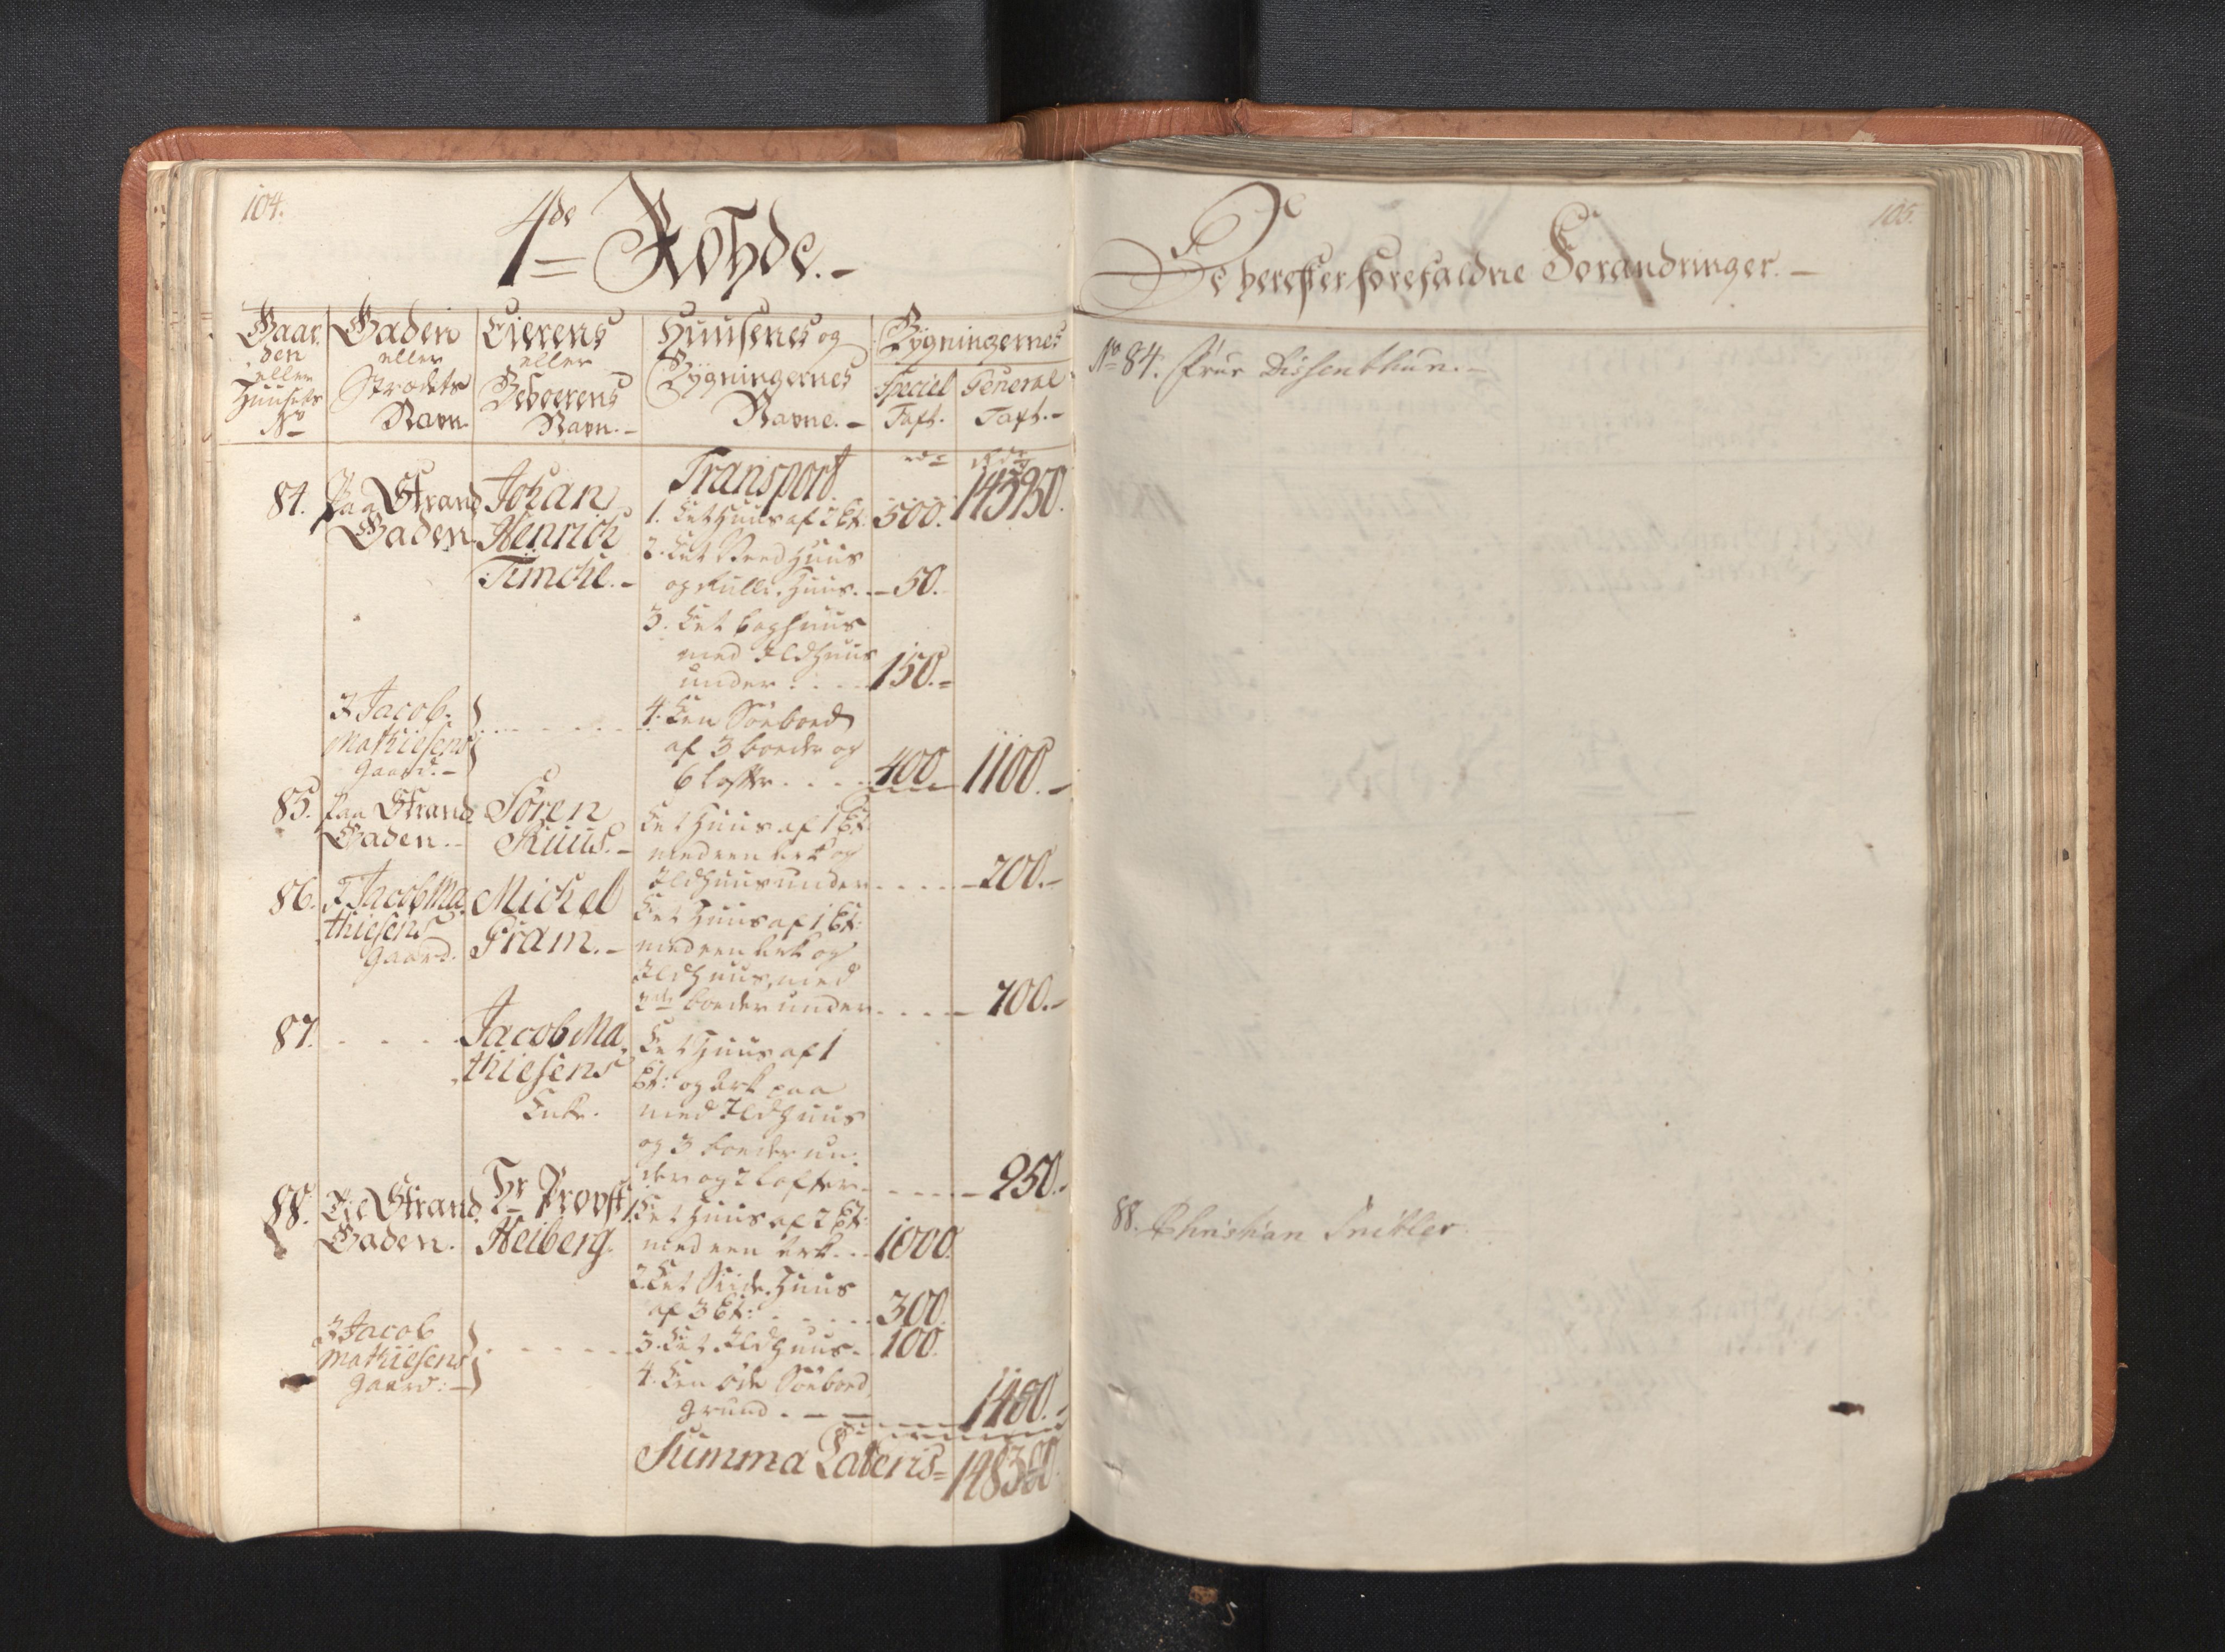 104.
4de Rohde.-
Gaar
den
eller
Huusets
No
Gaden
eller
Strædets
Navn
Eierens
eller
Beboerens
Navn.-
Huusenes og
Bygningernes
Navne.-
Bygningernes
Speciel
Taxt.
General
Taxt.-
Transport
145950.
84.
Paa Strand
Gaden
Johan
Henrich
Timche.-
1. Eet Huus af 2 Et: 500.
2. Eet Veed Huus
og Rulle Huus. - 50.
3. Eet baghuus
med Ildhuus
under . . . 150.-
I Jacob
Mathiesens
gaard.-
4. Een Søeboed
af 3 boeder og
6 lofte . . . . 400 1100.-
85.
Paa Strand
Gaden.-
Søren
Ruus.-
Eet Huus af 1 Et:
med een Ark og
Ildhuus under . . . . - 200.-
86.
I Jacob Ma
thiesens
gaard.
Michel
Fram.-
Eet Huus af 1 Et:
med een Ark og
Ildhuus, med
2de boeder under . . . . - 700.-
87. . . . .
Jacob Ma
thiesens
Enke.
Eet Huus af 1
Et: og Ark paa
med Ildhuus
og 3 boeder un:
der og 2 lofter . . . . - 250.-
88.
Paa Strand
Gaden.
Hr Provst
Heiberg.
1. Eet Huus af 2 Et:
med een Ark . . 1000.
2. Eet Side Huus
af 3 Et: . . . . . 300.
3. Eet Ildhuus. 100.
I Jacob
Mathiesens
gaard:-
4. Een øde Søeboed
grund . - - 1400.-
Summa Lateris = 148300.
105.
De herefter forefaldne Forandringer.-
No 84. Frue Dissenthun.-
88. Christian Tribler.